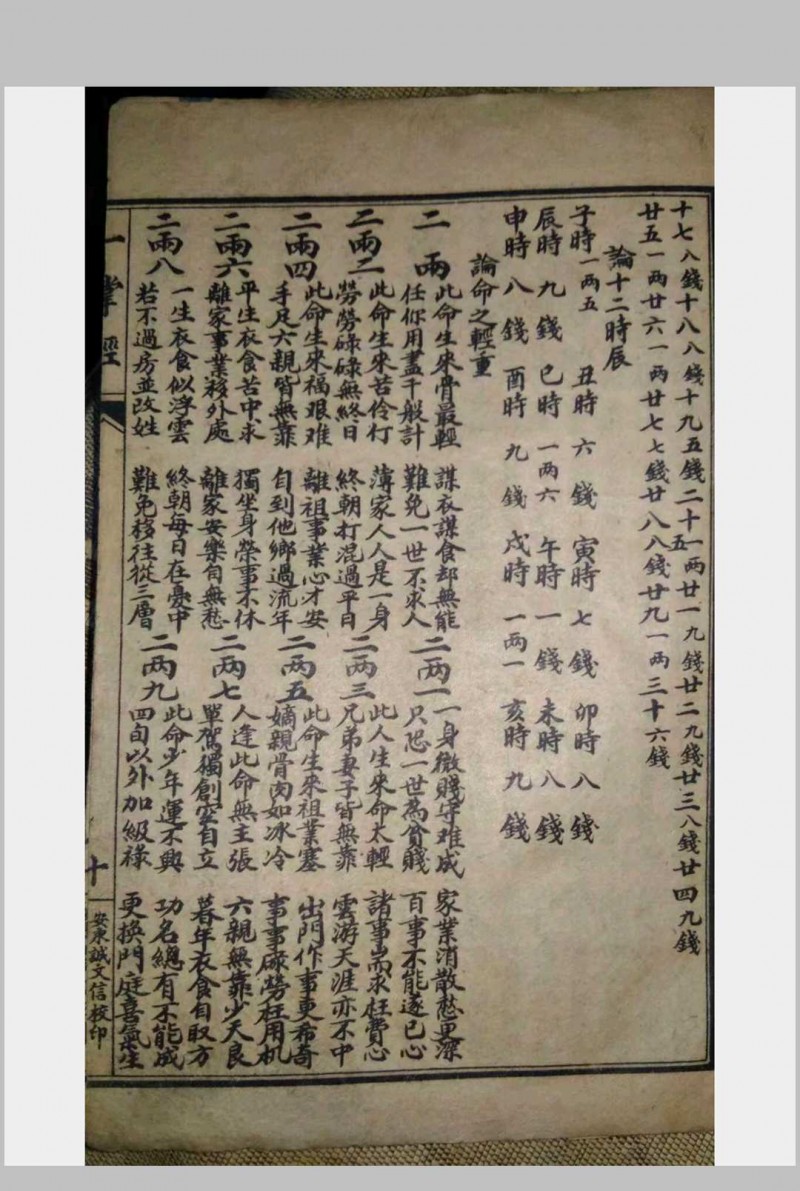 十七八錢十八八錢十九五錢二十一兩五廿一九錢廿二九錢廿三八錢廿四九錢
廿五一两廿六一两廿七七錢廿八八錢廿九一两三十六錢
論十二時辰
子時一两五 丑時六錢 寅時七錢 卯時八錢
辰時九錢 巳時一两六 午時一錢 未時八錢
申時八錢 酉時九錢 戌時一两一 亥時九錢
論命之輕重
二兩
此命生來骨最輕 謀衣謀食却無能
任你用盡千般計 難免一世不求人
二兩一
一身微賤守难成 家業消散愁更深
只恐一世為貧賤 百事不能遂已心
二兩二
此命生來苦伶仃 薄家人人是一身
勞勞碌碌無終日 終朝打混過平日
二兩三
此人生來命太輕 諸事耑求枉費心
兄弟妻子皆無靠 雲游天涯亦不中
二兩四
此命生來福艰难 離祖事業心才安
手足六親皆無靠 自到他鄉過流年
二兩五
此命生來祖業塞 出門作事更希奇
嫡親骨肉如冰冷 事事碌勞枉用机
二兩六
平生衣食苦中求 獨坐身榮事不休
離家事業移外處 離家安樂自無愁
二两七
人逢此命無主張 六親無靠少天良
單駕獨創室自立 暮年衣食自取方
二兩八
一生衣食似浮雲 終朝每日在憂中
若不過房並改姓 難免移往從三層
二两九
此命少年運不興 功名總有不能成
四旬以外加級祿 更換門庭喜氣生
一掌經
十
安東誠文信校印